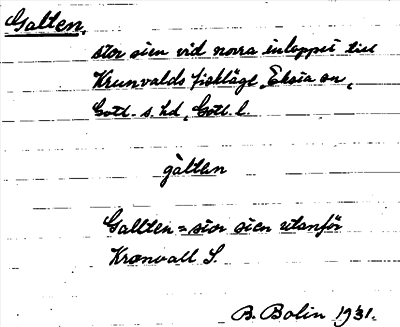 Galten,
stor sten vid norra inloppet till
Krunvalds fiskläge, Eksta sn,
Gotl. s. hd, Gotl. l.
gàltan
Galtten = stor sten utanför
Kronvall S.
B. Bolin 1931.